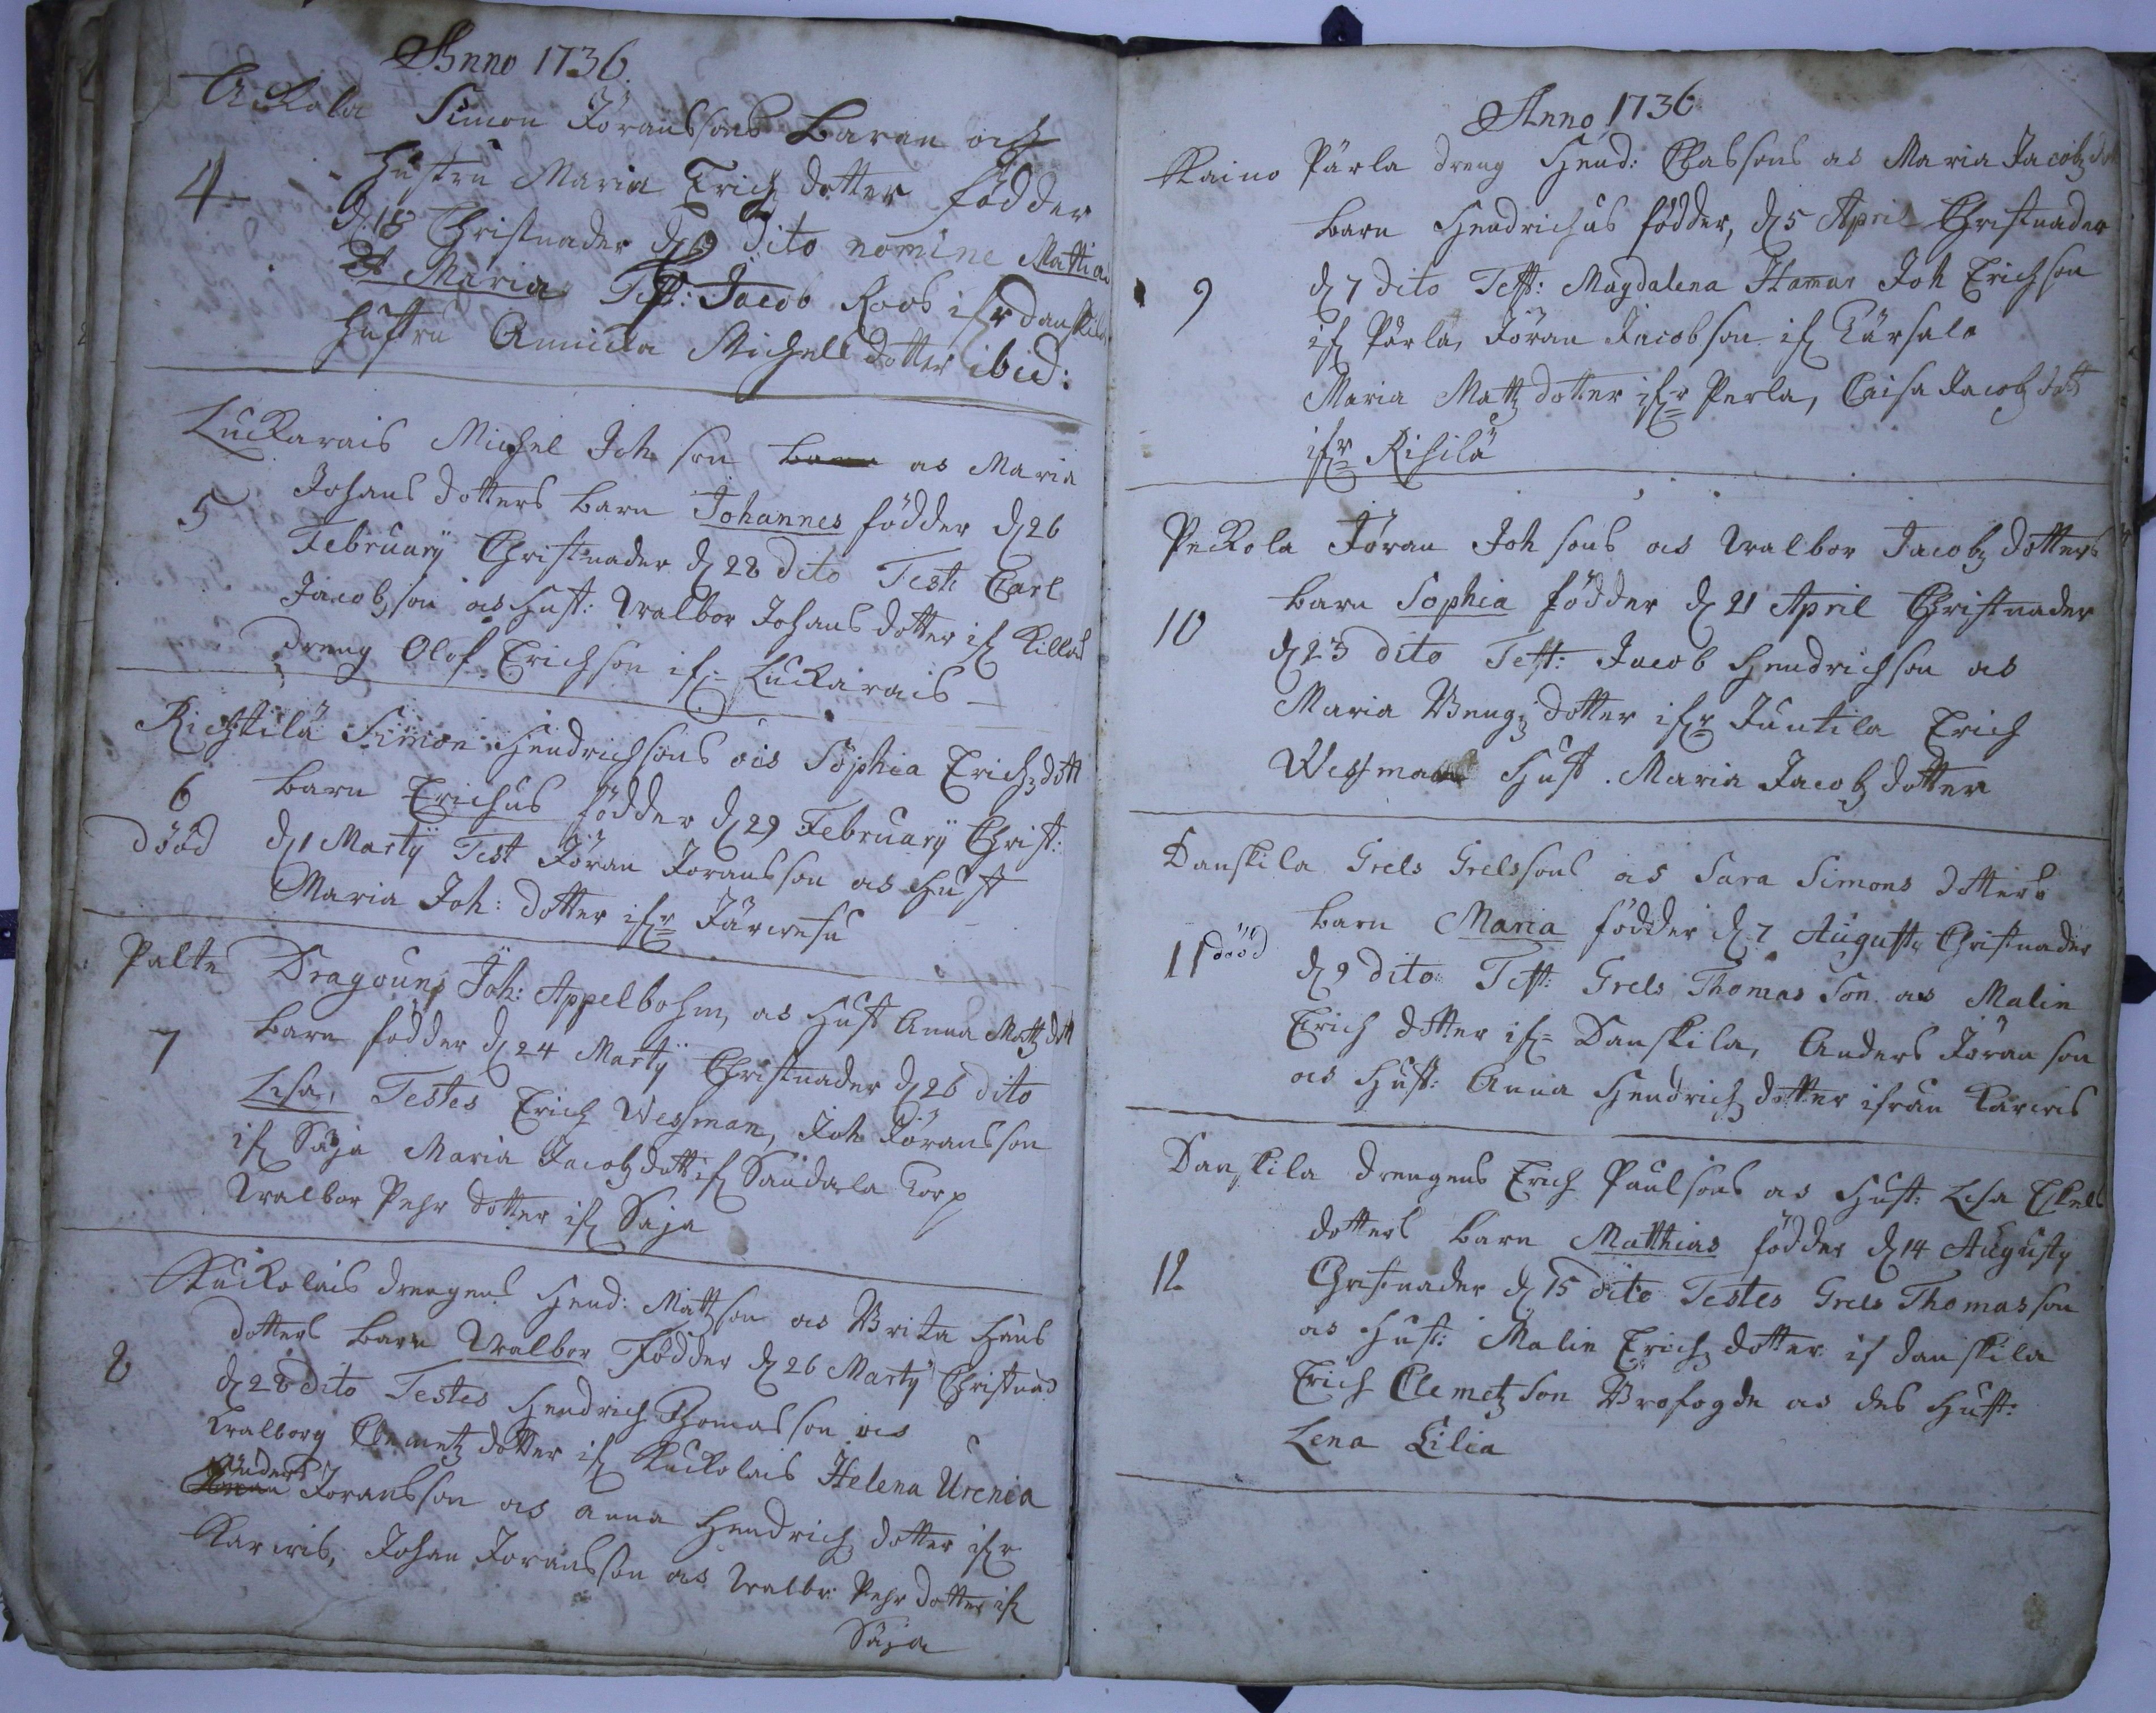 Anno 1736.
Ackola Simon Jöranssons Baran och
4 Hustru Maria Erichz dotter födder
d 18 Christnader d 19 dito nomine Mattias
et Maria Test: Jacob Roos ifr danskila
Hustru Annicka Michells dotter ibid:
Luckarais Michel Joh son as Maria
Johans dotters barn Johannes födder d 26
5 Februarÿ Christnader d 28 dito Test Carl
Jacobz son as Hust: Walbor Johans dotter if Killais
dreng Olof Erichson if= Luckarais
Richtilä Simon Hendrichsons as Sophia Erichz dott
6 barn Erichus födder d 29 Februarÿ Christ:
dööd d 1 Martÿ Test Jöran Joransson as Hust
Maria Joh: dotter ifr= Järwesu
Palte Dragouns Joh: Appelbohm, as Hust Anna Mattz dott
7 barn födder d 24 Martÿ Christnader d 26 dito
Lisa, Testes Erich Wessman, Joh Jöransson
if Säja Maria Jacobz dott if Sandala Torp
Walbor Pehr dotter if Saja
Kuckolais drengens Hend: Mattzson as Brita Hans
dotters barn Walbor Födder d 26 Martÿ Christnad
8 d 28 dito Testes Hendrich Thomasson as
Walborg Clemetz dotter if Kuckolais Helena Urenia
Anders Joransson as anna Hendrichz dotter ifr
Karwis, Johan Joransson as Walbr: Pehr dotter if
Säja
Anno 1736
Kaino Pärla dreng Hend: Classons as Maria Jacobz dot
barn Hendrichus födder, d 5 April Christnader
9 d 7 dito Test: Magdalena Stamar Joh Erichson
if Pärla, Jöran Jacobson if Kärsala
Maria Mattz dotter ifr= Perla, Caisa Jacobz dott
ifr= Risilä
Peckola Jöran Joh sons as Walbor Jacobz dotters
barn Sophia födder d 21 April Christnader
10 d 23 dito Test: Jacob Hendrichson as
Maria Bengz dotter ifr= Juntila Erich
Wessman Hust. Maria Jacobz dotter
Danskila Grels Grelssons as Sara Simons dotters
barn Maria födder d 7 Augusty Christnader
11 dööd d 9 dito: Test: Grels Thomas son as Malin
Erich dotter if= Danskila, Anders Jöran son
as Hust: Anna Hendrichz dotter ifrån Karwis
Danskila drengens Erich Paulsons as Hust: Lisa Eskels
dotters barn Matthias födder d 14 Augusty
12 Christnader d 15 dito Testes Grels Thomasson
as Hust: Malin Erichz dotter if danskila
Erich Clemetz son Brofogde as des Hust:
Lena Lilia